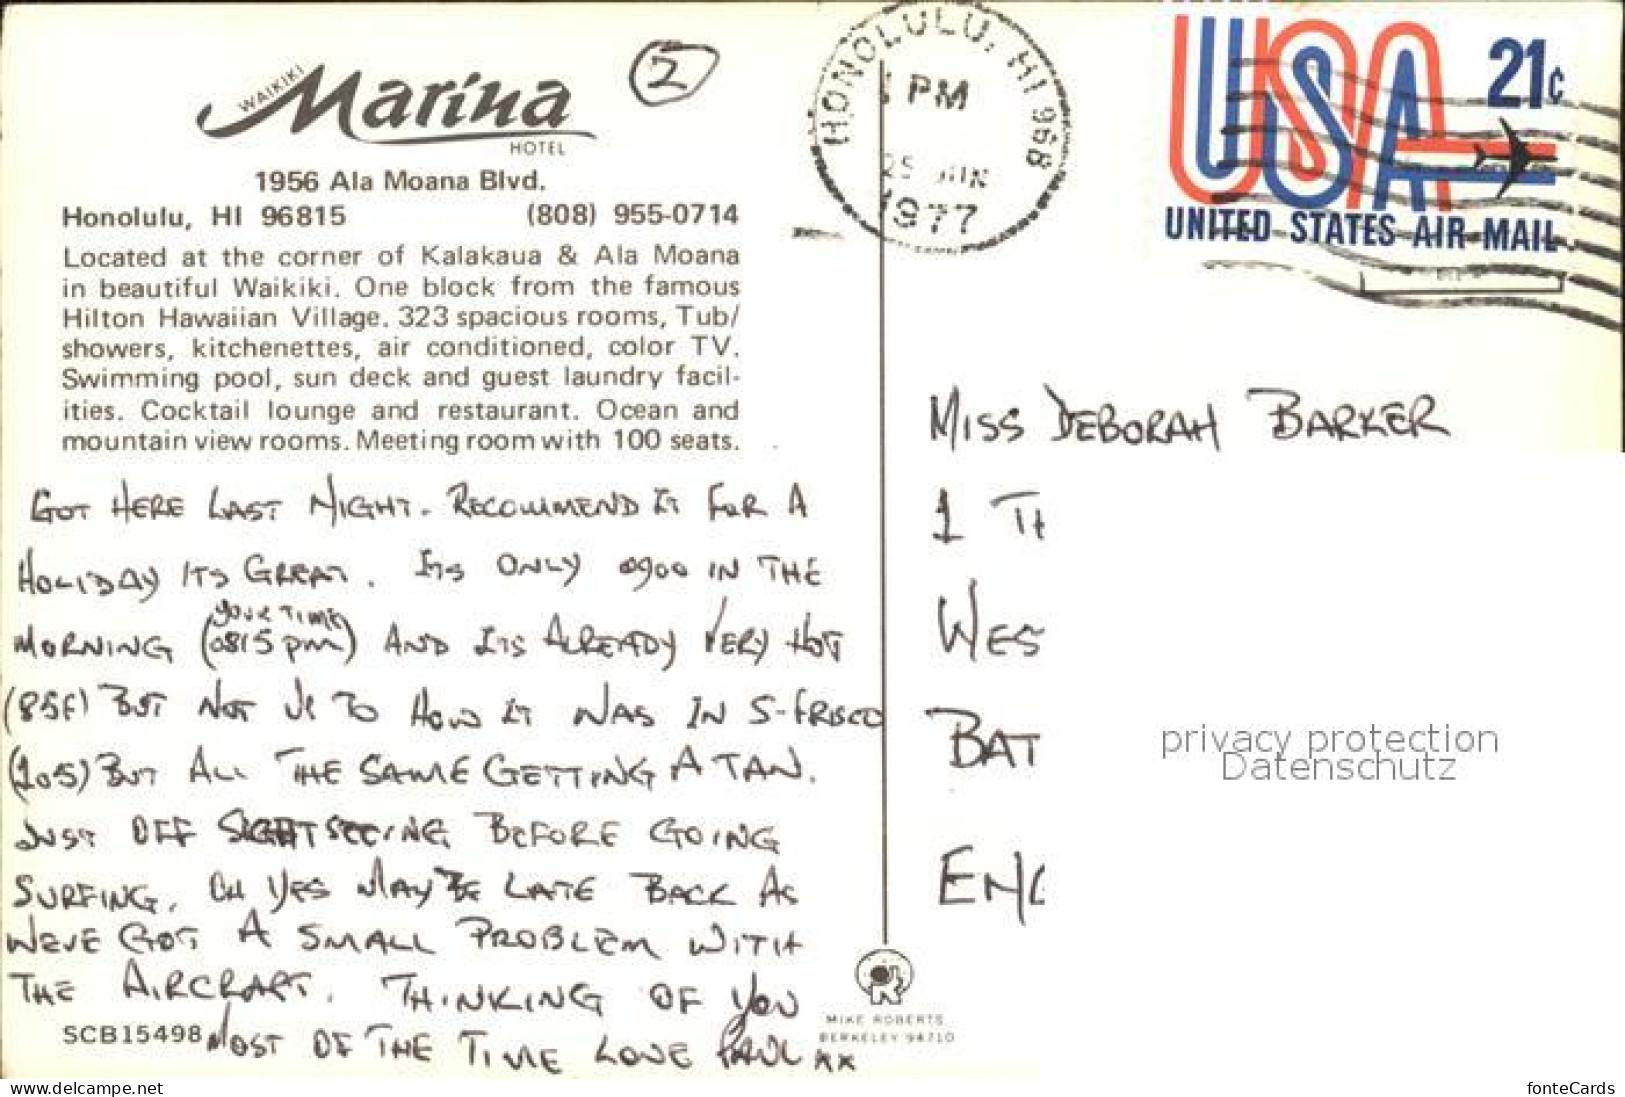 WAIKIKI
Marina
HOTEL
2
1956 Ala Moana Blvd.
Honolulu, HI 96815 (808) 955-0714
Located at the corner of Kalakaua & Ala Moana
in beautiful Waikiki. One block from the famous
Hilton Hawaiian Village. 323 spacious rooms, Tub/
showers, kitchenettes, air conditioned, color TV.
Swimming pool, sun deck and guest laundry facil-
ities. Cocktail lounge and restaurant. Ocean and
mountain view rooms. Meeting room with 100 seats.
GOT HERE LAST NIGHT. RECOMMEND IT FOR A
HOLIDAY ITS GREAT. ITS ONLY 0900 IN THE
YOUR TIME
MORNING (0815 pm) AND ITS ALREADY VERY HOT
(85F) BUT NOT UP TO HOW IT WAS IN S-FRISCO
(105) BUT ALL THE SAME GETTING A TAN.
JUST OFF SIGHTSEEING BEFORE GOING
SURFING. OH YES MAY BE LATE BACK AS
WEVE GOT A SMALL PROBLEM WITH
THE AIRCRAFT. THINKING OF YOU
MOST OF THE TIME LOVE PAUL XX
SCB15498
MIKE ROBERTS
BERKELEY 94710
HONOLULU, HI 968
PM
25 JUN
1977
USA 21c
UNITED STATES AIR MAIL
MISS DEBORAH BARKER
1 TH
WES
BAT
ENG
privacy protection
Datenschutz
www.delcampe.net
fonteCards